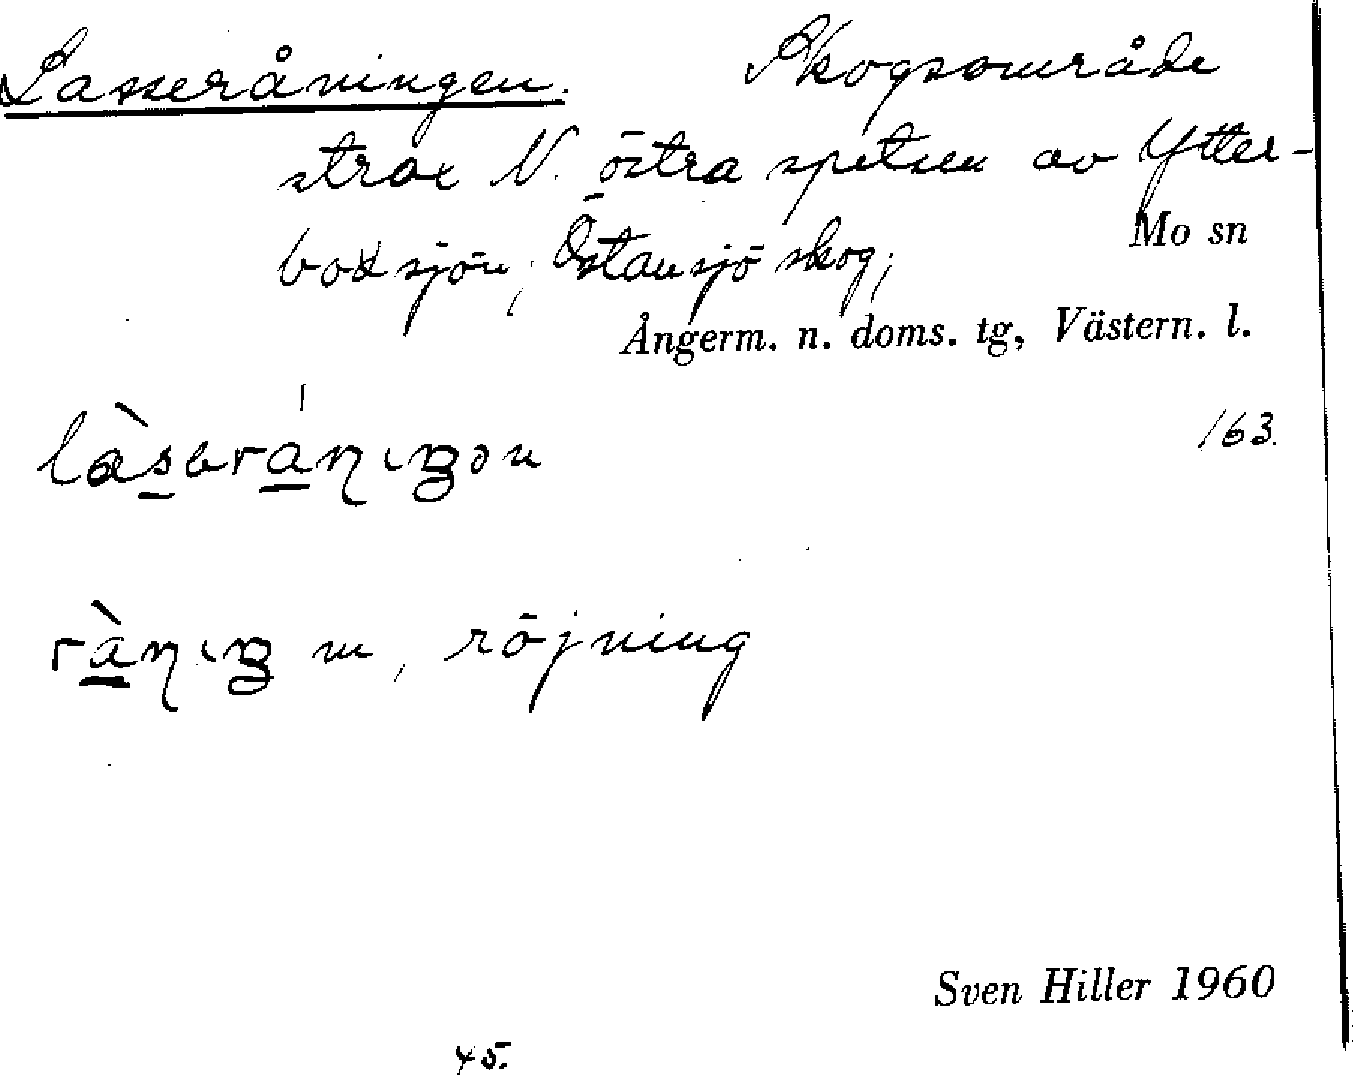 Lasseråningen. Skogsområde
strax N. östra spetsen av Ytter-
boxsjön, Östansjö skog;
Mo sn
Ångerm. n. doms. tg, Västern. l.
163.
råning m, röjning
Sven Hiller 1960
45.